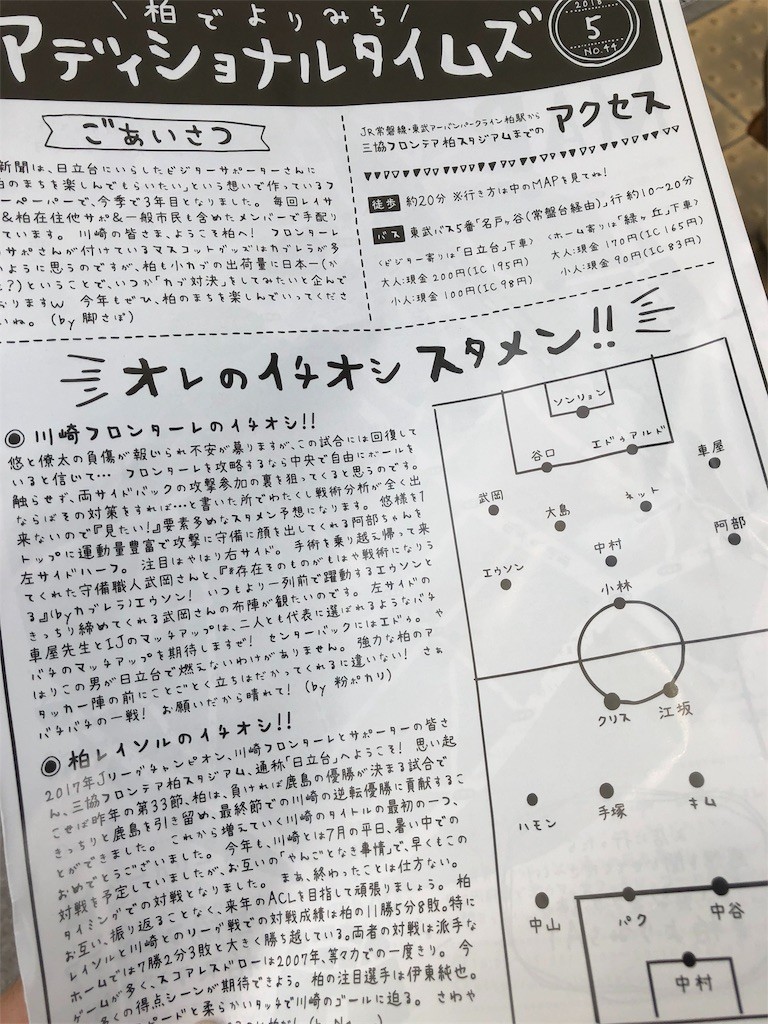 柏でよりみち
アディショナルタイムズ
2018
5
No.44
ごあいさつ
新聞は、日立台にいらしたビジターサポーターさんに
柏のまちを楽しんでもらいたい」という想いで作っているフ
ーペーパーで、今季で3年目となりました。毎回レイサ
&柏在住他サポ&一般市民も含めたメンバーで手配り
ています。川崎の皆さま、ようこそ柏へ! フロンターレ
サポさんが付けているマスコットグッズはカブレラが多
ように思うのですが、柏も小カブの出荷量に日本一(か
?)ということで、いつか「カブ対決」をしてみたいと企んで
おりますw 今年もぜひ、柏のまちを楽しんでいってくださ
いね。(by 脚さぽ)
JR常磐線・東武アーバンパークライン柏駅から
三協フロンテア柏スタジアムまでの
アクセス
徒歩 約20分 ※行き方は中のMAPを見てね!
バス 東武バス5番「名戸ヶ谷(常盤台経由)」行 約10~20分
<ビジター寄りは「日立台」下車>
大人:現金200円(IC 195円)
小人:現金100円(IC 98円)
<ホーム寄りは「緑ヶ丘」下車>
大人:現金170円(IC 165円)
小人:現金90円(IC 83円)
オレのイチオシ スタメン!!
川崎フロンターレのイチオシ!!
悠と僚太の負傷が報じられ不安が募りますが、この試合には回復して
いると信じて… フロンターレを攻略するなら中央で自由にボールを
触らせず、両サイドバックの攻撃参加の裏を狙ってくると思うのです。
ならばその対策をすれば…と書いた所でわたくし戦術分析が全く出
来ないので『見たい!』要素多めなスタメン予想になります。悠様を1
トップに運動量豊富で攻撃に守備に顔を出してくれる阿部ちゃんを
左サイドハーフ。注目はやはり右サイド。手術を乗り越え帰って来
てくれた守備職人武岡さんと、『*存在そのものがもはや戦術になりう
る』(byカブレラ)エウソン! いつもより一列前で躍動するエウソンと
きっちり締めてくれる武岡さんの布陣が観たいのです。左サイドの
車屋先生とIJのマッチアップは、二人とも代表に選ばれるようなバチ
バチのマッチアップを期待しますぜ! センターバックにはエドゥ。や
はりこの男が日立台で燃えないわけがありません。強力な柏のア
タッカー陣の前にことごとく立ちはだかってくれるに違いない! さぁ
バチバチの一戦! お願いだから晴れて! (by 粉ポカリ)
柏レイソルのイチオシ!!
2017年Jリーグチャンピオン、川崎フロンターレとサポーターの皆さ
ん、三協フロンテア柏スタジアム、通称「日立台」へようこそ! 思い起
こせば昨年の第33節、柏は、負ければ鹿島の優勝が決まる試合で
きっちりと鹿島を引き留め、最終節での川崎の逆転優勝に貢献するこ
とができました。これから増えていく川崎のタイトルの最初の一つ、
おめでとうございました。今年も、川崎とは7月の平日、暑い中での
対戦を予定していましたが、お互いの「やんごとなき事情」で、早くもこの
タイミングでの対戦となりました。まあ、終わったことは仕方ない。
お互い、振り返ることなく、来年のACLを目指して頑張りましょう。柏
レイソルと川崎とのリーグ戦での対戦成績は柏の11勝5分8敗。特に
ホームでは7勝2分3敗と大きく勝ち越している。両者の対戦は派手な
ゲームが多く、スコアレスドローは2007年、等々力での一度きり。今
多くの得点シーンが期待できよう。柏の注目選手は伊東純也。
ピードと柔らかいタッチで川崎のゴールに迫る。さわや
ソンリョン
谷口
エドゥアルド
車屋
武岡
大島
ネット
阿部
エウソン
中村
小林
クリス
江坂
ハモン
手塚
キム
中山
パク
中谷
中村